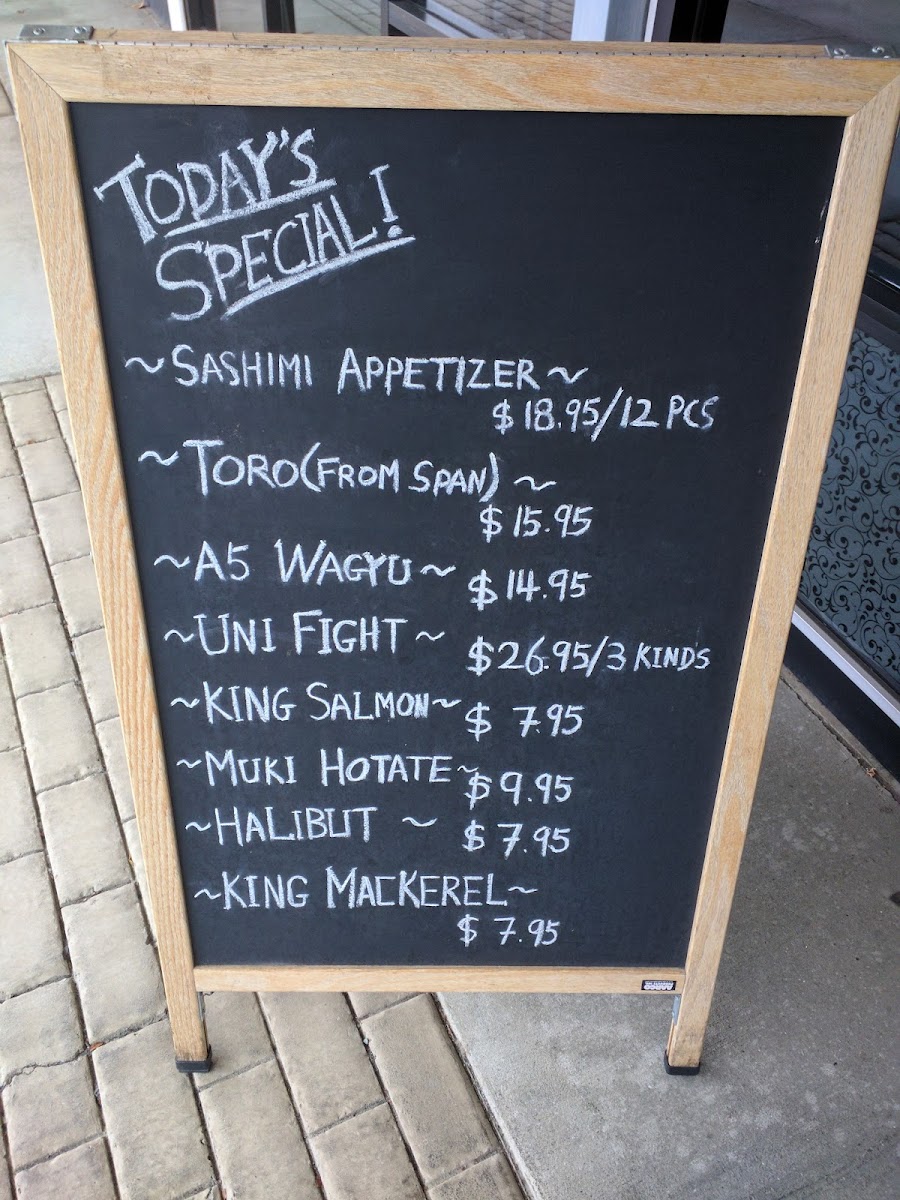 TODAY'S
SPECIAL!
~SASHIMI APPETIZER~
$18.95/12 PCS
~TORO(FROM SPAN)~
$15.95
~A5 WAGYU~ $14.95
~UNI FIGHT~ $26.95/3 KINDS
~KING SALMON~ $7.95
~MUKI HOTATE~ $9.95
~HALIBUT~ $7.95
~KING MACKEREL~
$7.95
AARCO